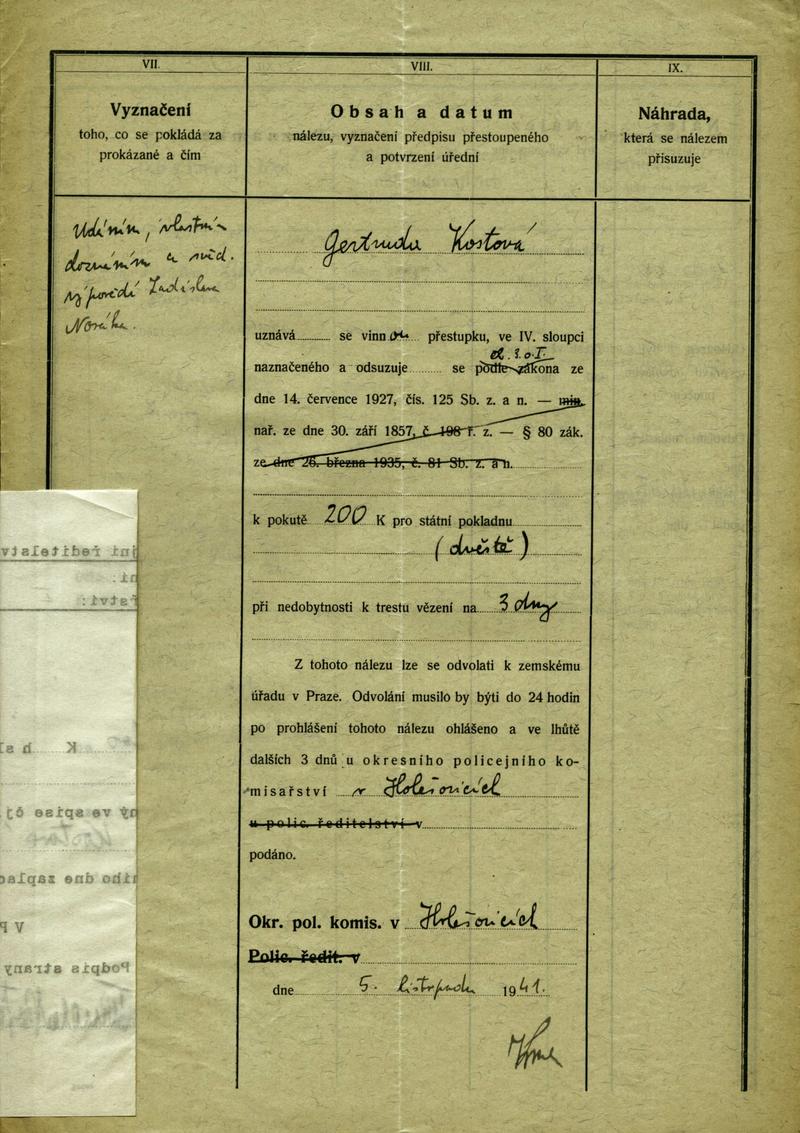 VII.
Vyznačení
toho, co se pokládá za
prokázané a čím
Udáním, vlastním
doznáním a svěd.
výpovědí Ladislava
Nováka.
VIII.
Obsah a datum
nálezu, vyznačení předpisu přestoupeného
a potvrzení úřední
Gertruda Kostová
uznává se vinnou přestupku, ve IV. sloupci
čl. 3. o. I.
naznačeného a odsuzuje se podle zákona ze
dne 14. července 1927, čís. 125 Sb. z. a n. — min.
nař. ze dne 30. září 1857, č. 198 ř. z. — § 80 zák.
ze dne 26. března 1935, č. 81 Sb. z. a n.
k pokutě 200 K pro státní pokladnu
(dvěstě)
při nedobytnosti k trestu vězení na 3 dny
Z tohoto nálezu lze se odvolati k zemskému
úřadu v Praze. Odvolání musilo by býti do 24 hodin
po prohlášení tohoto nálezu ohlášeno a ve lhůtě
dalších 3 dnů u okresního policejního ko-
misařství v Holešovicích
u polic. ředitelství v
podáno.
Okr. pol. komis. v Holešovicích
Polic. ředit. v
dne 5. listopadu 1941.
IX.
Náhrada,
která se nálezem
přisuzuje